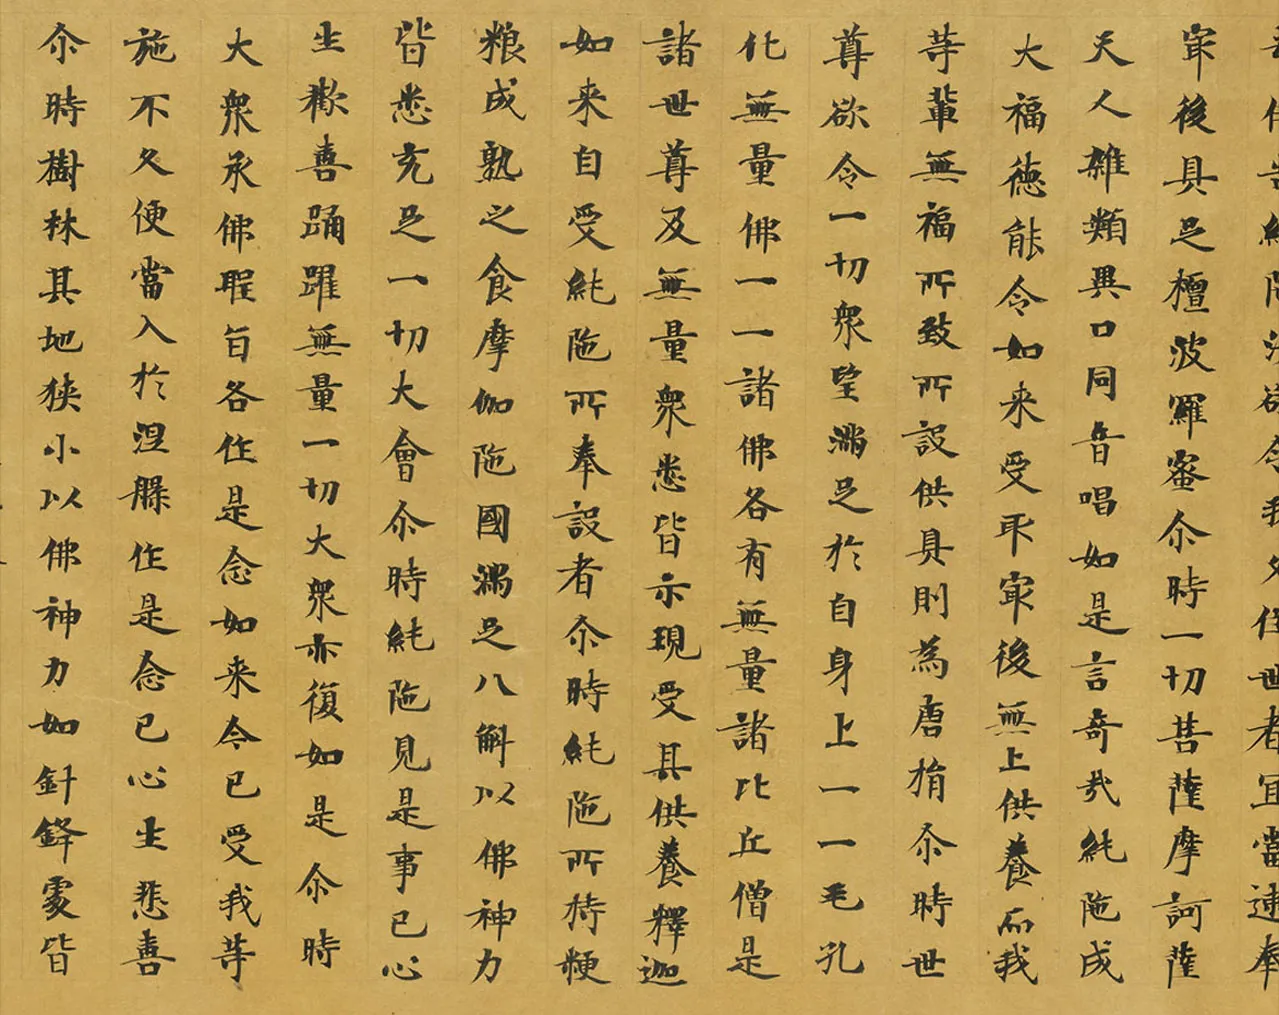 世者宜當速奉
㝡後具足檀波羅蜜尒時一切菩薩摩訶薩
天人雜類異口同音唱如是言奇哉純陁成
大福德能令如来受取㝡後無上供養而我
等輩無福所致所設供具則為唐捐尒時世
尊欲令一切衆望滿足於自身上一一毛孔
化無量佛一一諸佛各有無量諸比丘僧是
諸世尊及無量衆悉皆示現受其供養釋迦
如来自受純陁所奉設者尒時純陁所持粳
粮成熟之食摩伽陁國滿足八斛以佛神力
皆悉充足一切大會尒時純陁見是事已心
生歡喜踊躍無量一切大衆亦復如是尒時
大衆承佛聖旨各作是念如来今已受我等
施不久便當入於涅槃作是念已心生悲喜
尒時樹林其地狹小以佛神力如針鋒處皆